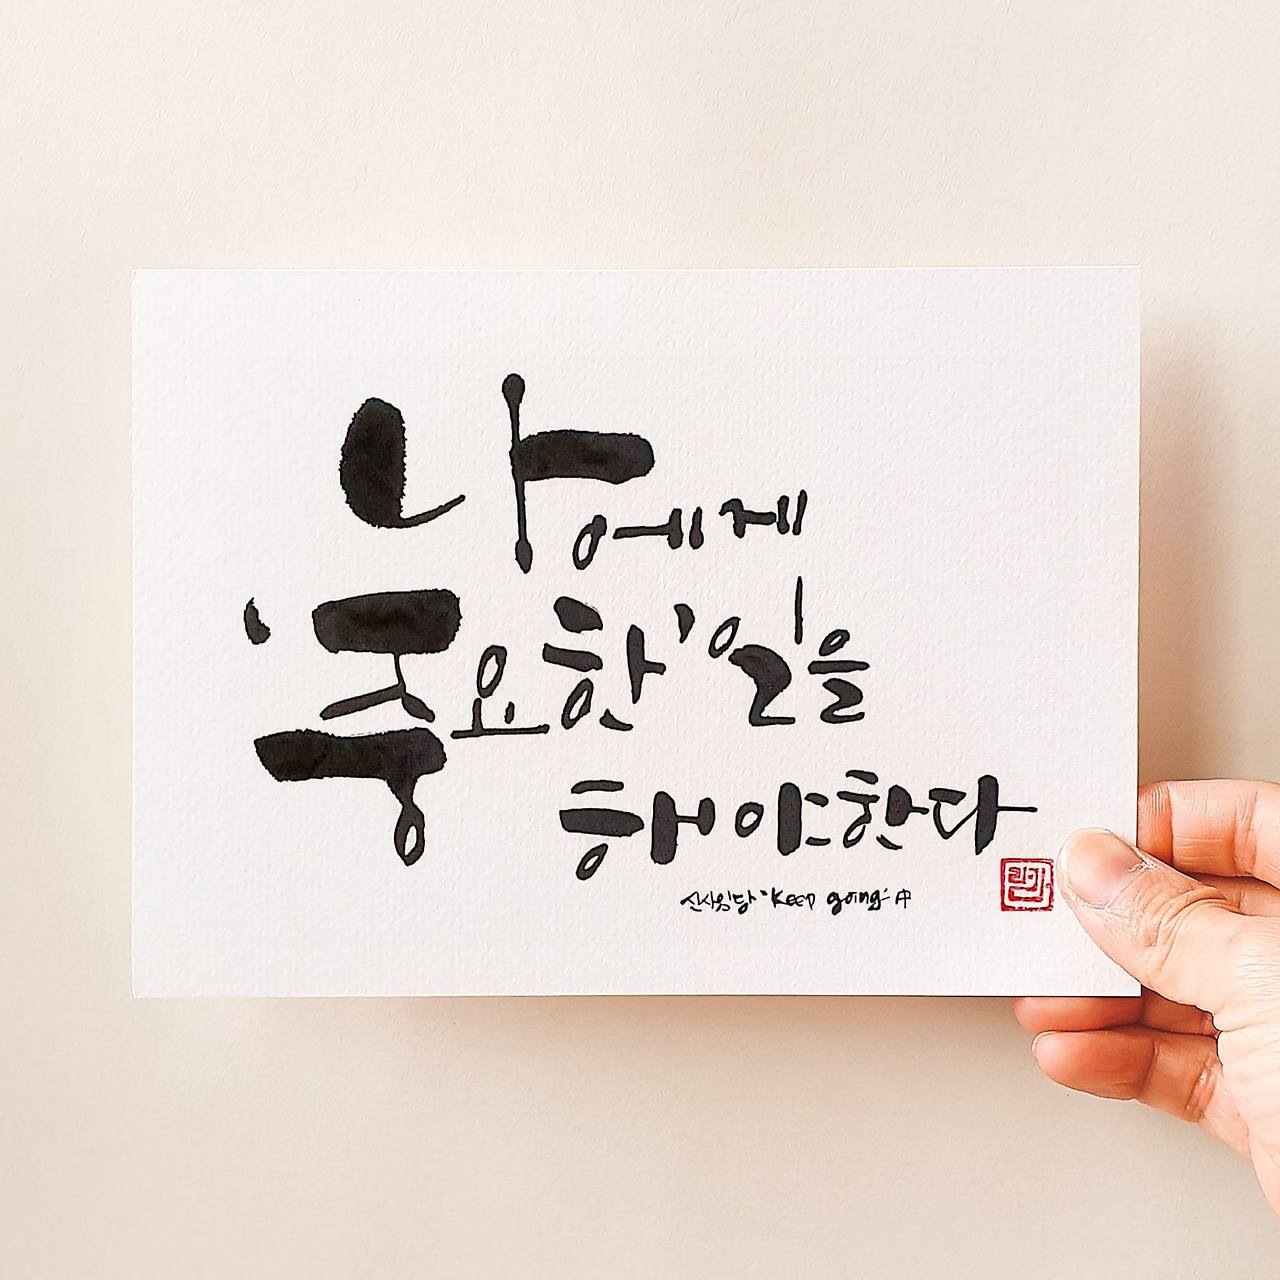 나에게
'중요한' 일을
해야한다
신사임당 'Keep going' 中